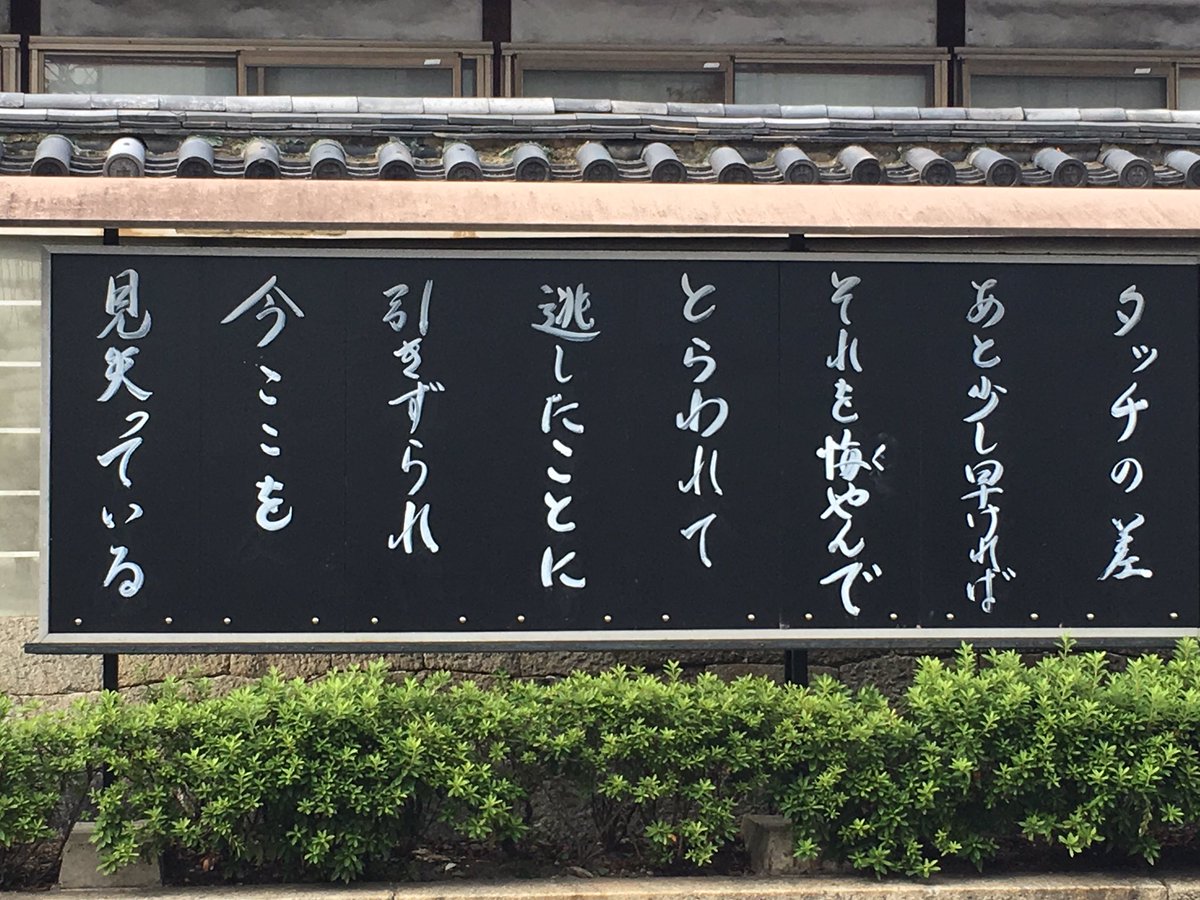 タッチの差
あと少し早ければ
それを悔やんで
く
とらわれて
逃したことに
引きずられ
今ここを
見失っている